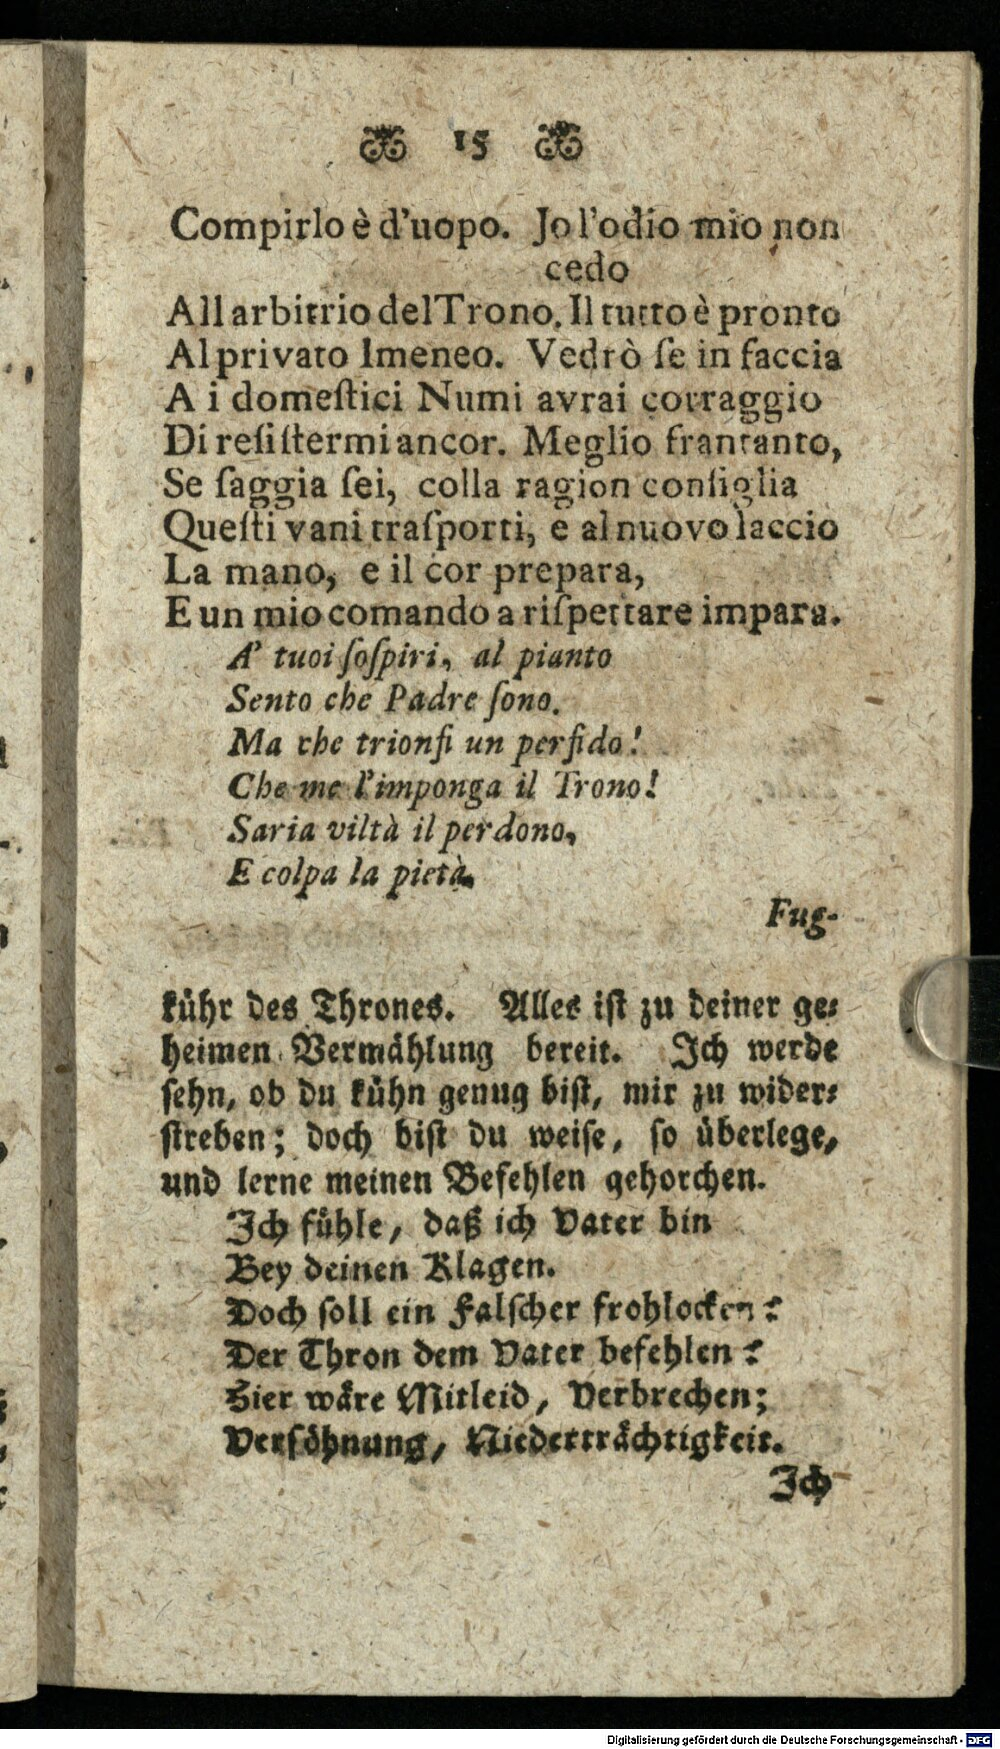 15
Compirlo è d'uopo. Jo l'odio mio non
cedo
All arbitrio del Trono. Il tutto è pronto
Al privato Imeneo. Vedrò ſe in faccia
A i domeſtici Numi avrai corraggio
Di reſiſtermi ancor. Meglio frantanto,
Se ſaggia ſei, colla ragion conſiglia
Queſti vani traſporti, e al nuovo laccio
La mano, e il cor prepara,
E un mio comando a riſpettare impara.
A' tuoi ſoſpiri, al pianto
Sento che Padre ſono.
Ma che trionfi un perfido!
Che me l'imponga il Trono!
Saria viltà il perdono,
E colpa la pietà.
Fug-
kühr des Thrones. Alles iſt zu deiner ge⸗
heimen Vermählung bereit. Ich werde
ſehn, ob du kühn genug biſt, mir zu wider⸗
ſtreben; doch biſt du weiſe, ſo überlege,
und lerne meinen Befehlen gehorchen.
Ich fühle, daß ich Vater bin
Bey deinen Klagen.
Doch ſoll ein Falſcher frohlocken?
Der Thron dem Vater befehlen?
Hier wäre Mitleid, Verbrechen;
Verſöhnung, Niederträchtigkeit.
Ich
Digitalisierung gefördert durch die Deutsche Forschungsgemeinschaft - DFG